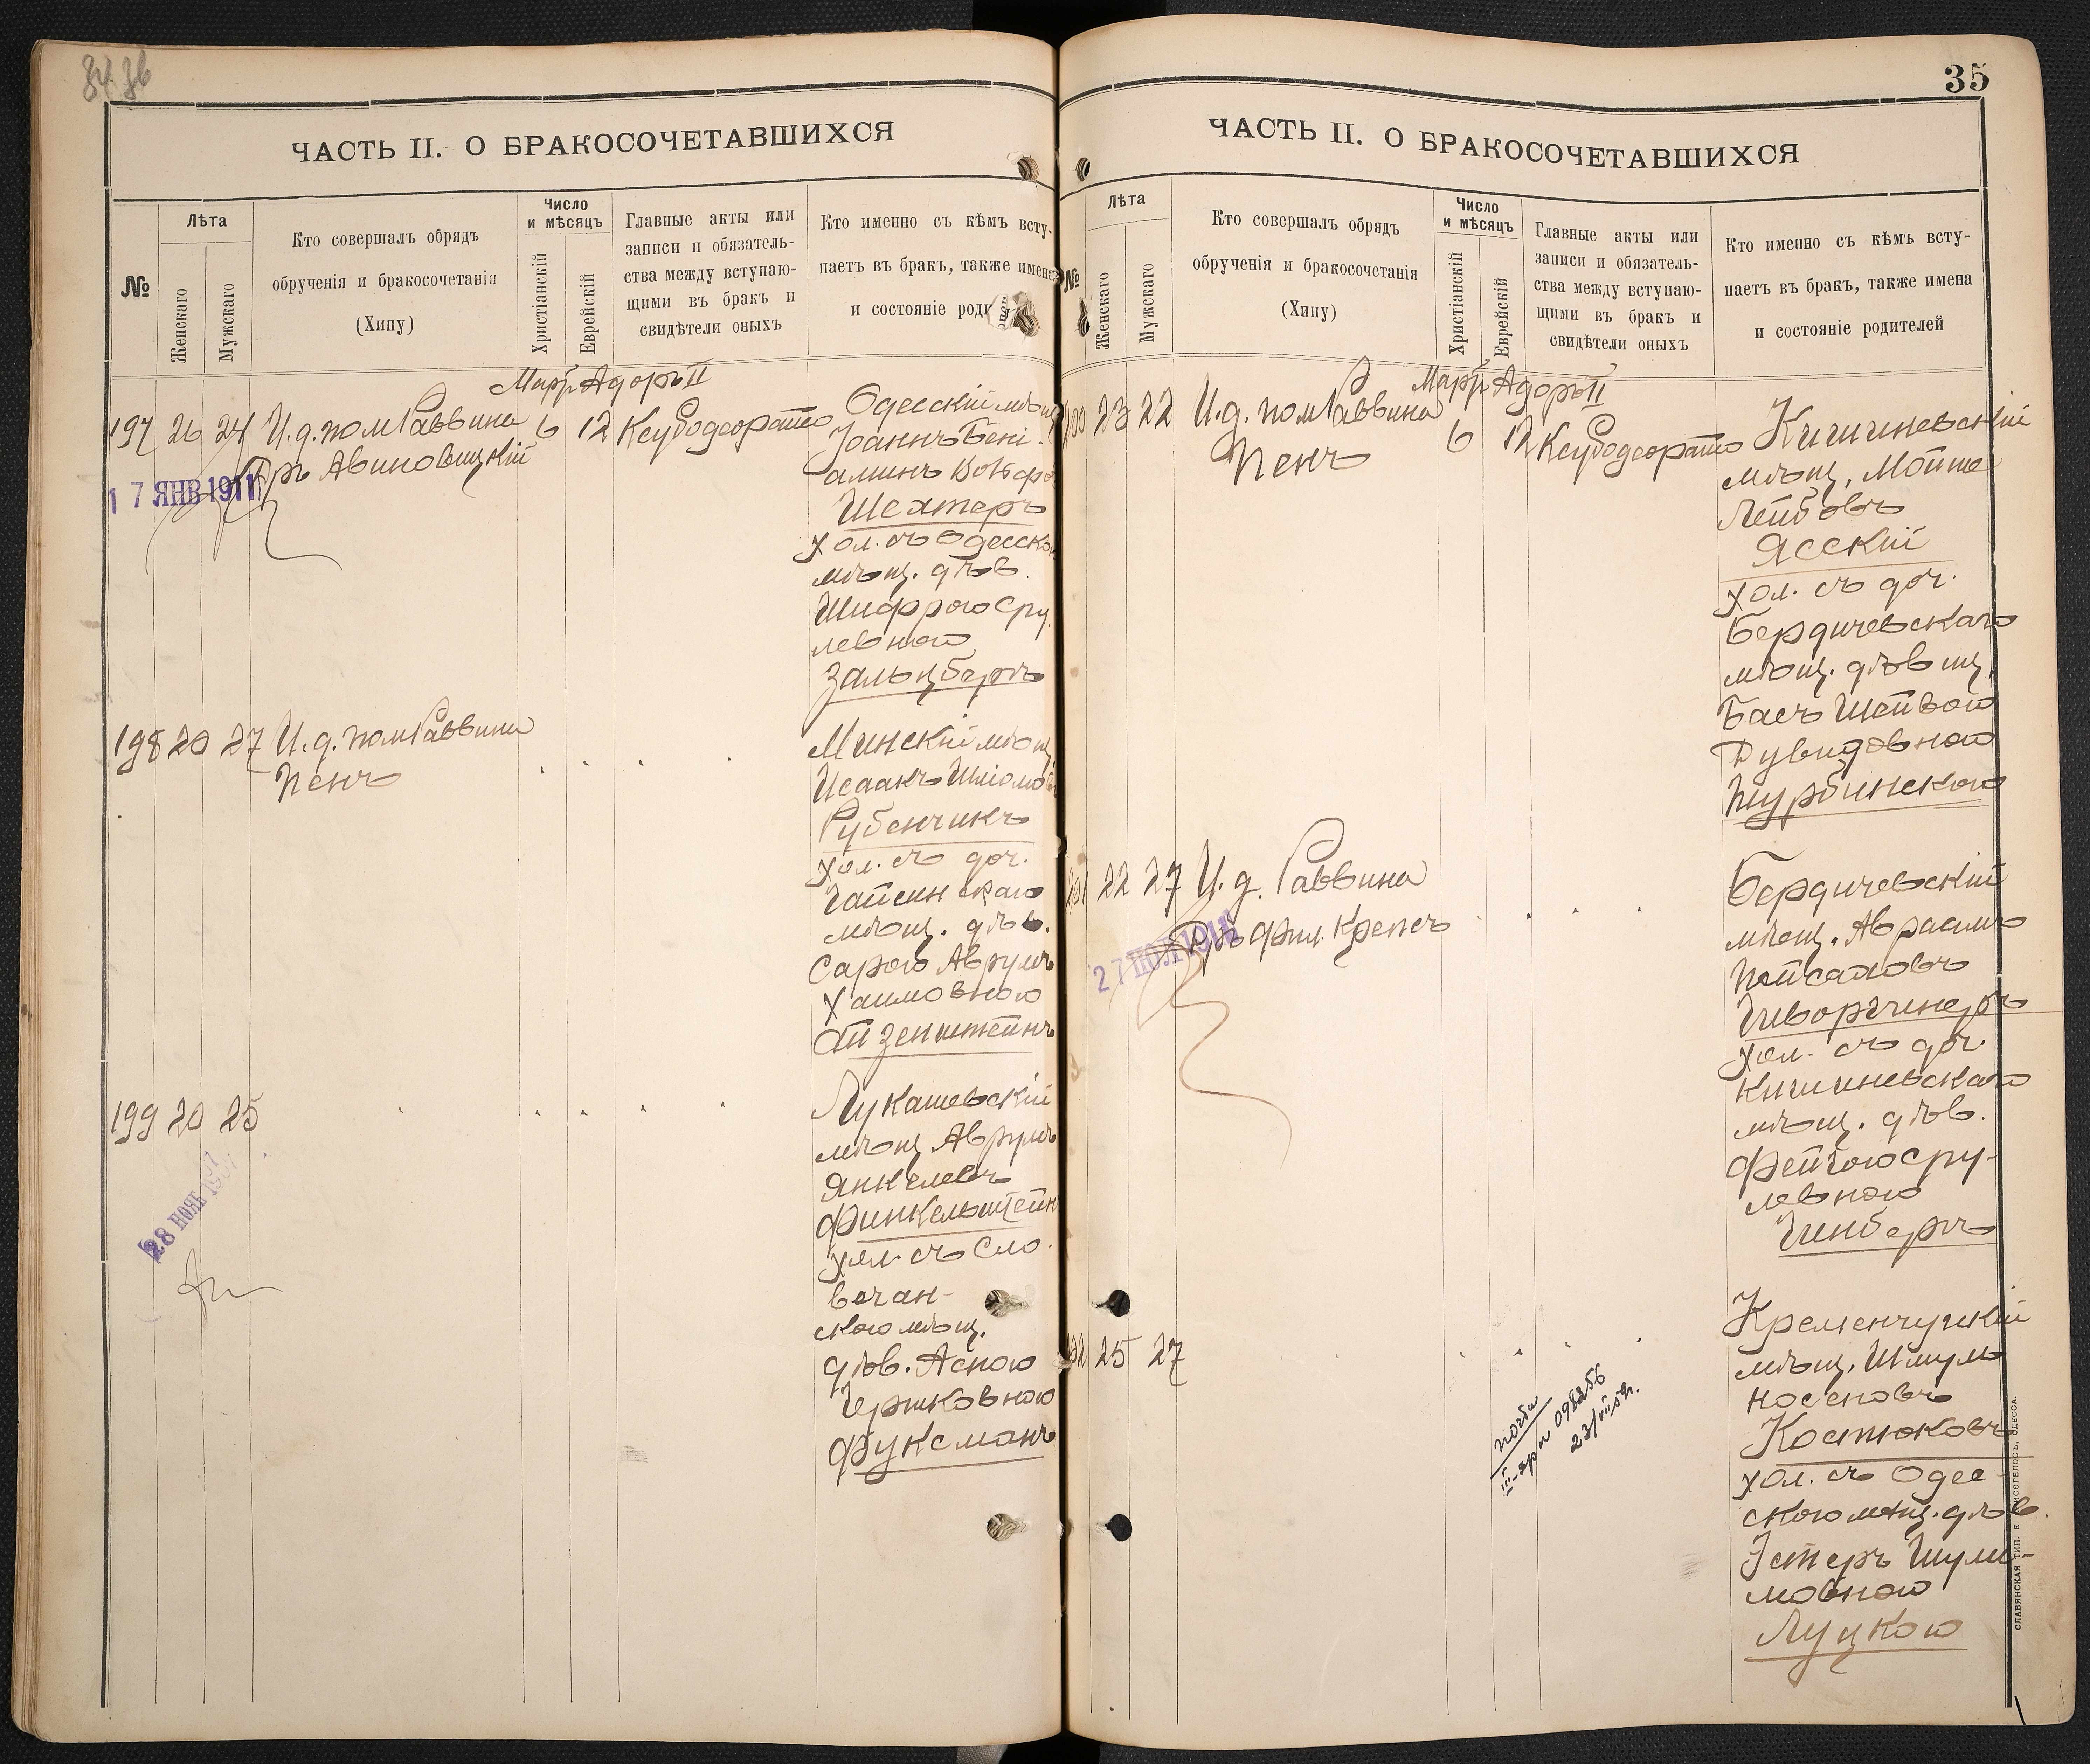 35
ЧАСТЬ II. О БРАКОСОЧЕТАВШИХСЯ
№
Лѣта
Женскаго
Мужскаго
Кто совершалъ обрядъ
обрученія и бракосочетанія
(Хипу)
Число
и мѣсяцъ
Христіанскій
Еврейскій
Главные акты или
записи и обязатель-
ства между вступаю-
щими въ бракъ и
свидѣтели оныхъ
Кто именно съ кѣмъ всту-
паетъ въ бракъ, также имена
и состояніе роди
Мартъ Адоръ II
197 26 24 И.д. пом Раввина 6 12 Ксубодеорайто
Гр. Авиновицкій
17 ЯНВ 1911
Одесскій мѣщ.
Іоаннъ Бені-
аминъ Вольфо
Шехтеръ
хол. съ Одесскою
мѣщ. дѣв.
Шифрою Сру-
левною
Зальцбергъ
198 20 27 И.д. пом Раввина
Пенъ
Минскій мѣщ.
Исаакъ Шліомо
Рубенчикъ
хол. съ доч.
Гайсинскаго
мѣщ. дѣв.
Сарою Аврумъ
Хаимовною
Айзенштейнъ
199 20 25
28 НОЯБ 1907
Лукашевскій
мѣщ. Аврумъ
Янкелевъ
Финкельштейнъ
хол. съ Сло-
вечан-
скою мѣщ.
дѣв. Асною
Гершковною
Фуксманъ
ЧАСТЬ II. О БРАКОСОЧЕТАВШИХСЯ
№
Лѣта
Женскаго
Мужскаго
Кто совершалъ обрядъ
обрученія и бракосочетанія
(Хипу)
Число
и мѣсяцъ
Христіанскій
Еврейскій
Главные акты или
записи и обязатель-
ства между вступаю-
щими въ бракъ и
свидѣтели оныхъ
Кто именно съ кѣмъ всту-
паетъ въ бракъ, также имена
и состояніе родителей
Мартъ Адоръ II
200 23 22 И.д. пом Раввина 6 12 Ксубодеорайто
Пенъ
Кишиневскій
мѣщ. Мойше
Лейбовъ
Ясскій
хол. съ доч.
Бердичевскаго
мѣщ. дѣвиц.
Бася Шейвою
Дувидовною
Турбинскою
201 22 27 И.д. Раввина
Д-ръ Фил. Крепсъ
27 ИЮЛ 191
Бердичевскій
мѣщ. Авраамъ
Пейсаховъ
Гиворгинеръ
хол. съ доч.
Кишиневскаго
мѣщ. дѣв.
Фейгою Сру-
левною
Гинбергъ
202 25 27
Кременчугскій
мѣщ. Шмуль
Носоновъ
Костюковъ
хол. съ Одес-
скою мѣщ. дѣв.
Эстеръ Шули-
мовною
Луцкою
СЛАВЯНСКАЯ ТИП. Е. ХРИСОГЕЛОСЪ, ОДЕССА